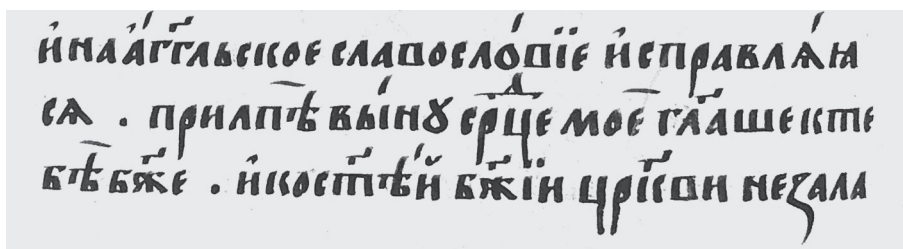 и҆ на а҆́гг҃льское славосло́вїе и҆справлѧ́ѧ
сѧ . прилпѣ̅ вы́нꙋ ср҃ⷣце мое̅ гл҃аше к те
бѣ̅ бж҃е . и҆ко стп҃ѣ́й бж҃їи цр҃кви не ꙁала